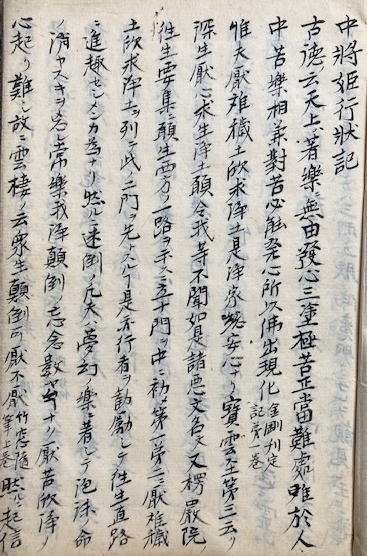 中將姫行狀記
古德云天上ハ著樂無由發心三塗極苦正當難處唯於人
中苦樂相兼對苦心能発心所以佛出現化 金剛刊定記第一卷
唯夫厭離穢土欣求淨土是淨家ノ安心ナリ寶雲至第三云ク
深生厭心求生淨土願令我等不聞如是諸悪文名文又楞嚴院
往生要集ニ願生西方ノ一路ヲ示ス三十門ノ中ニ初ノ第一第二ニ厭離穢
土欣求淨土ヲ列ニ此二門ヲ先スルヿ是亦行者ヲ勸勵シテ往生直路
ニ進趣セシメンカ為ナリ然ルニ迷倒ノ凡夫ハ夢幻ノ樂ニ著シテ泡沫ノ命
ノ消ヤスキヲ忘常樂我淨顛倒ノ忘念数々サナリ厭苦欣淨ノ
心起リ難シ故ニ雲棲ノ云衆生顛倒可厭不厭 竹窓随筆上卷 然ルニ起信